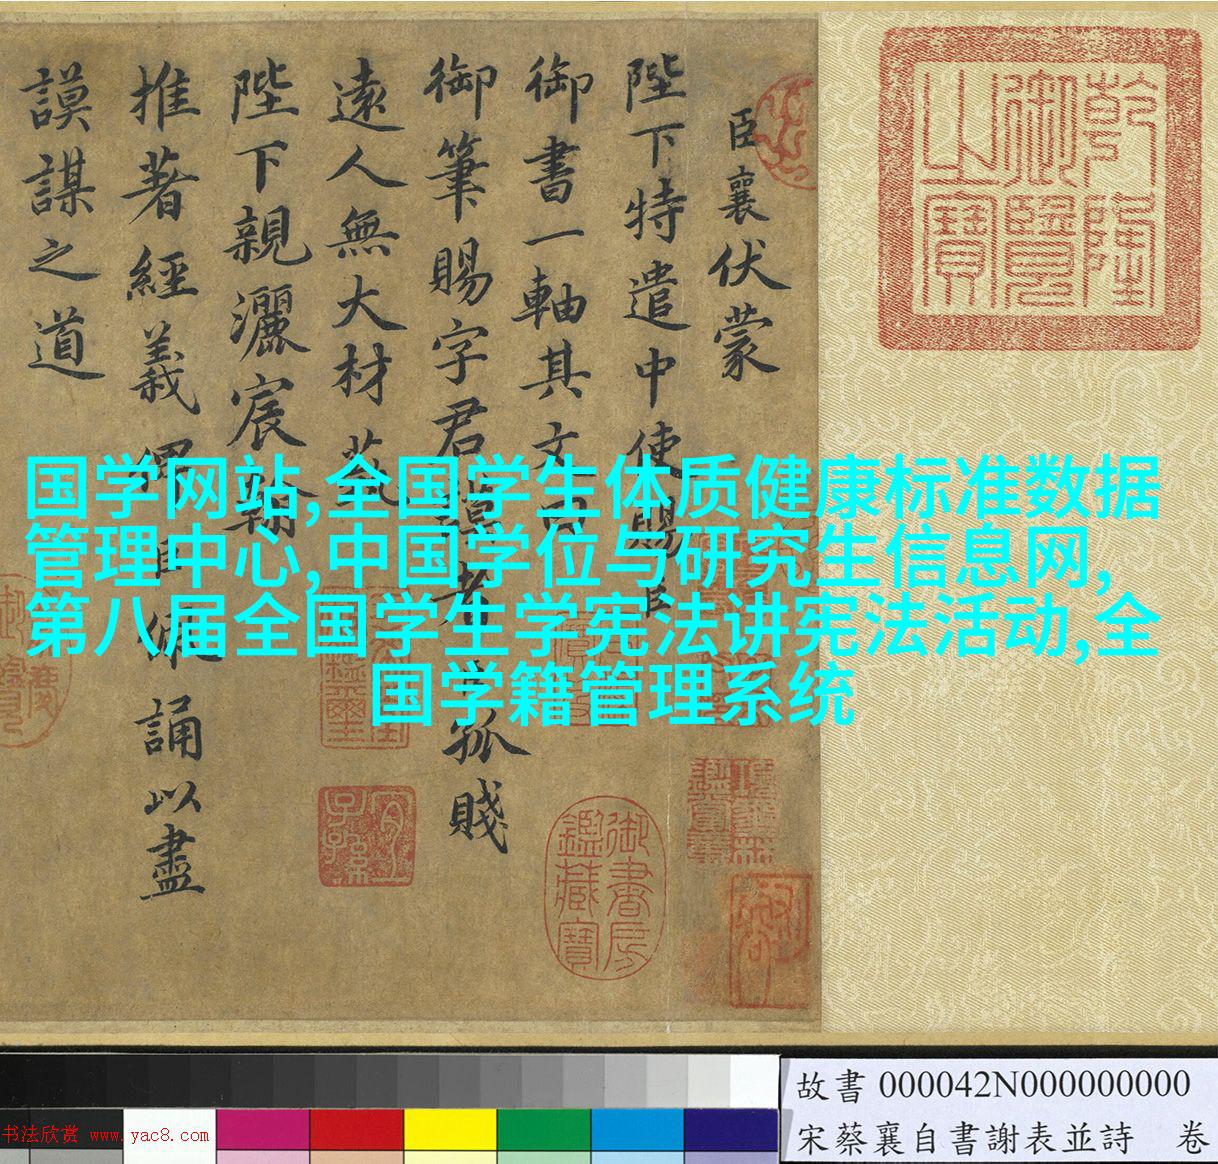 乾隆
御覽
之寶
臣襄伏蒙
陛下特遣中使賜臣
御書一軸其文曰
御筆賜字君謨者孤賤
遠人無大材藝
陛下親灑宸翰
推著經義俾臣佩誦以盡
謨謀之道
国学网站,全国学生体质健康标准数据
管理中心,中国学位与研究生信息网,
第八届全国学生学宪法讲宪法活动,全
国学籍管理系统
宜子孫
御書房
鑑藏寶
故書 000042N000000000
宋蔡襄自書謝表並詩 卷
书法欣赏 www.yac8.com